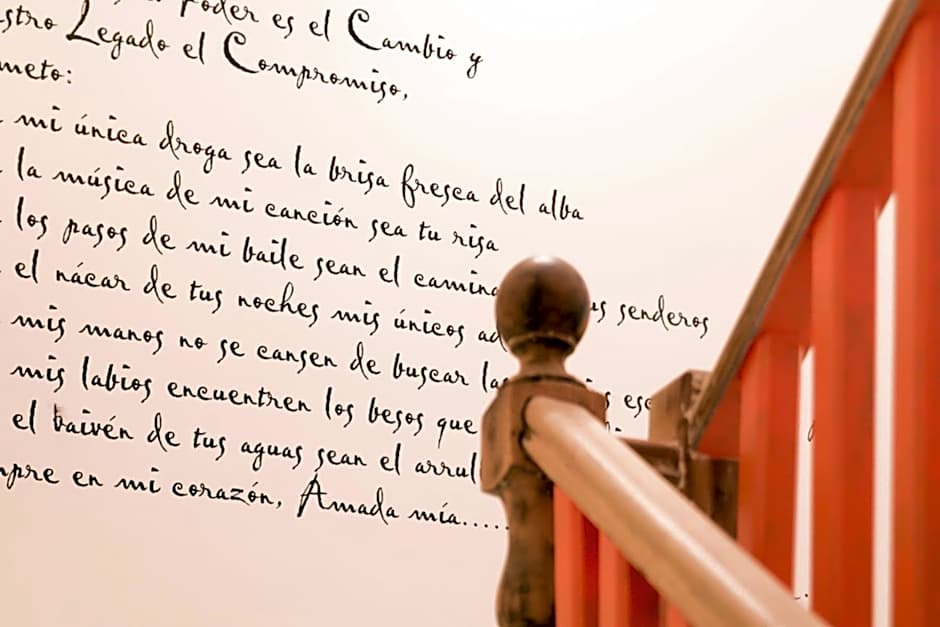 Poder es el Cambio y
Legado el Compromiso,
mi única droga sea la brisa fresca del alba
la música de mi canción sea tu risa
los pasos de mi baile sean el senderos
el nácar de tus noches mis únicos
mis manos no se cansen de buscar
mis labios encuentren los besos que
el baivén de tus aguas sean el
en mi corazón, Ámada mía.....